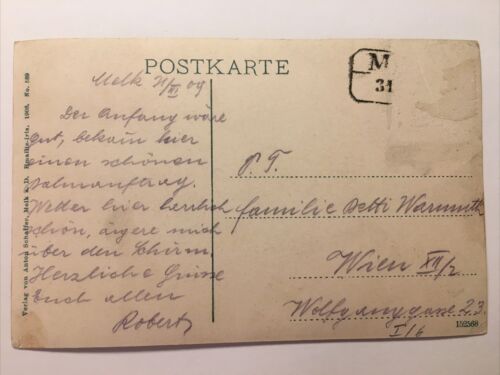 POSTKARTE
M
31
Melk 31/III 09
Der Anfang wäre
gut, bekam hier
einen schönen
Zahnauftrag.
Wetter hier herrlich
schön, ärgere mich
über den Schirm.
Herzliche Grüsse
Euch allen
Robert
P. T.
Familie Warmuth
Wien XII/2
Wolfganggasse 23
I/6
Verlag von Anton Schaffer, Melk a. D. 1908. No. 189
152568